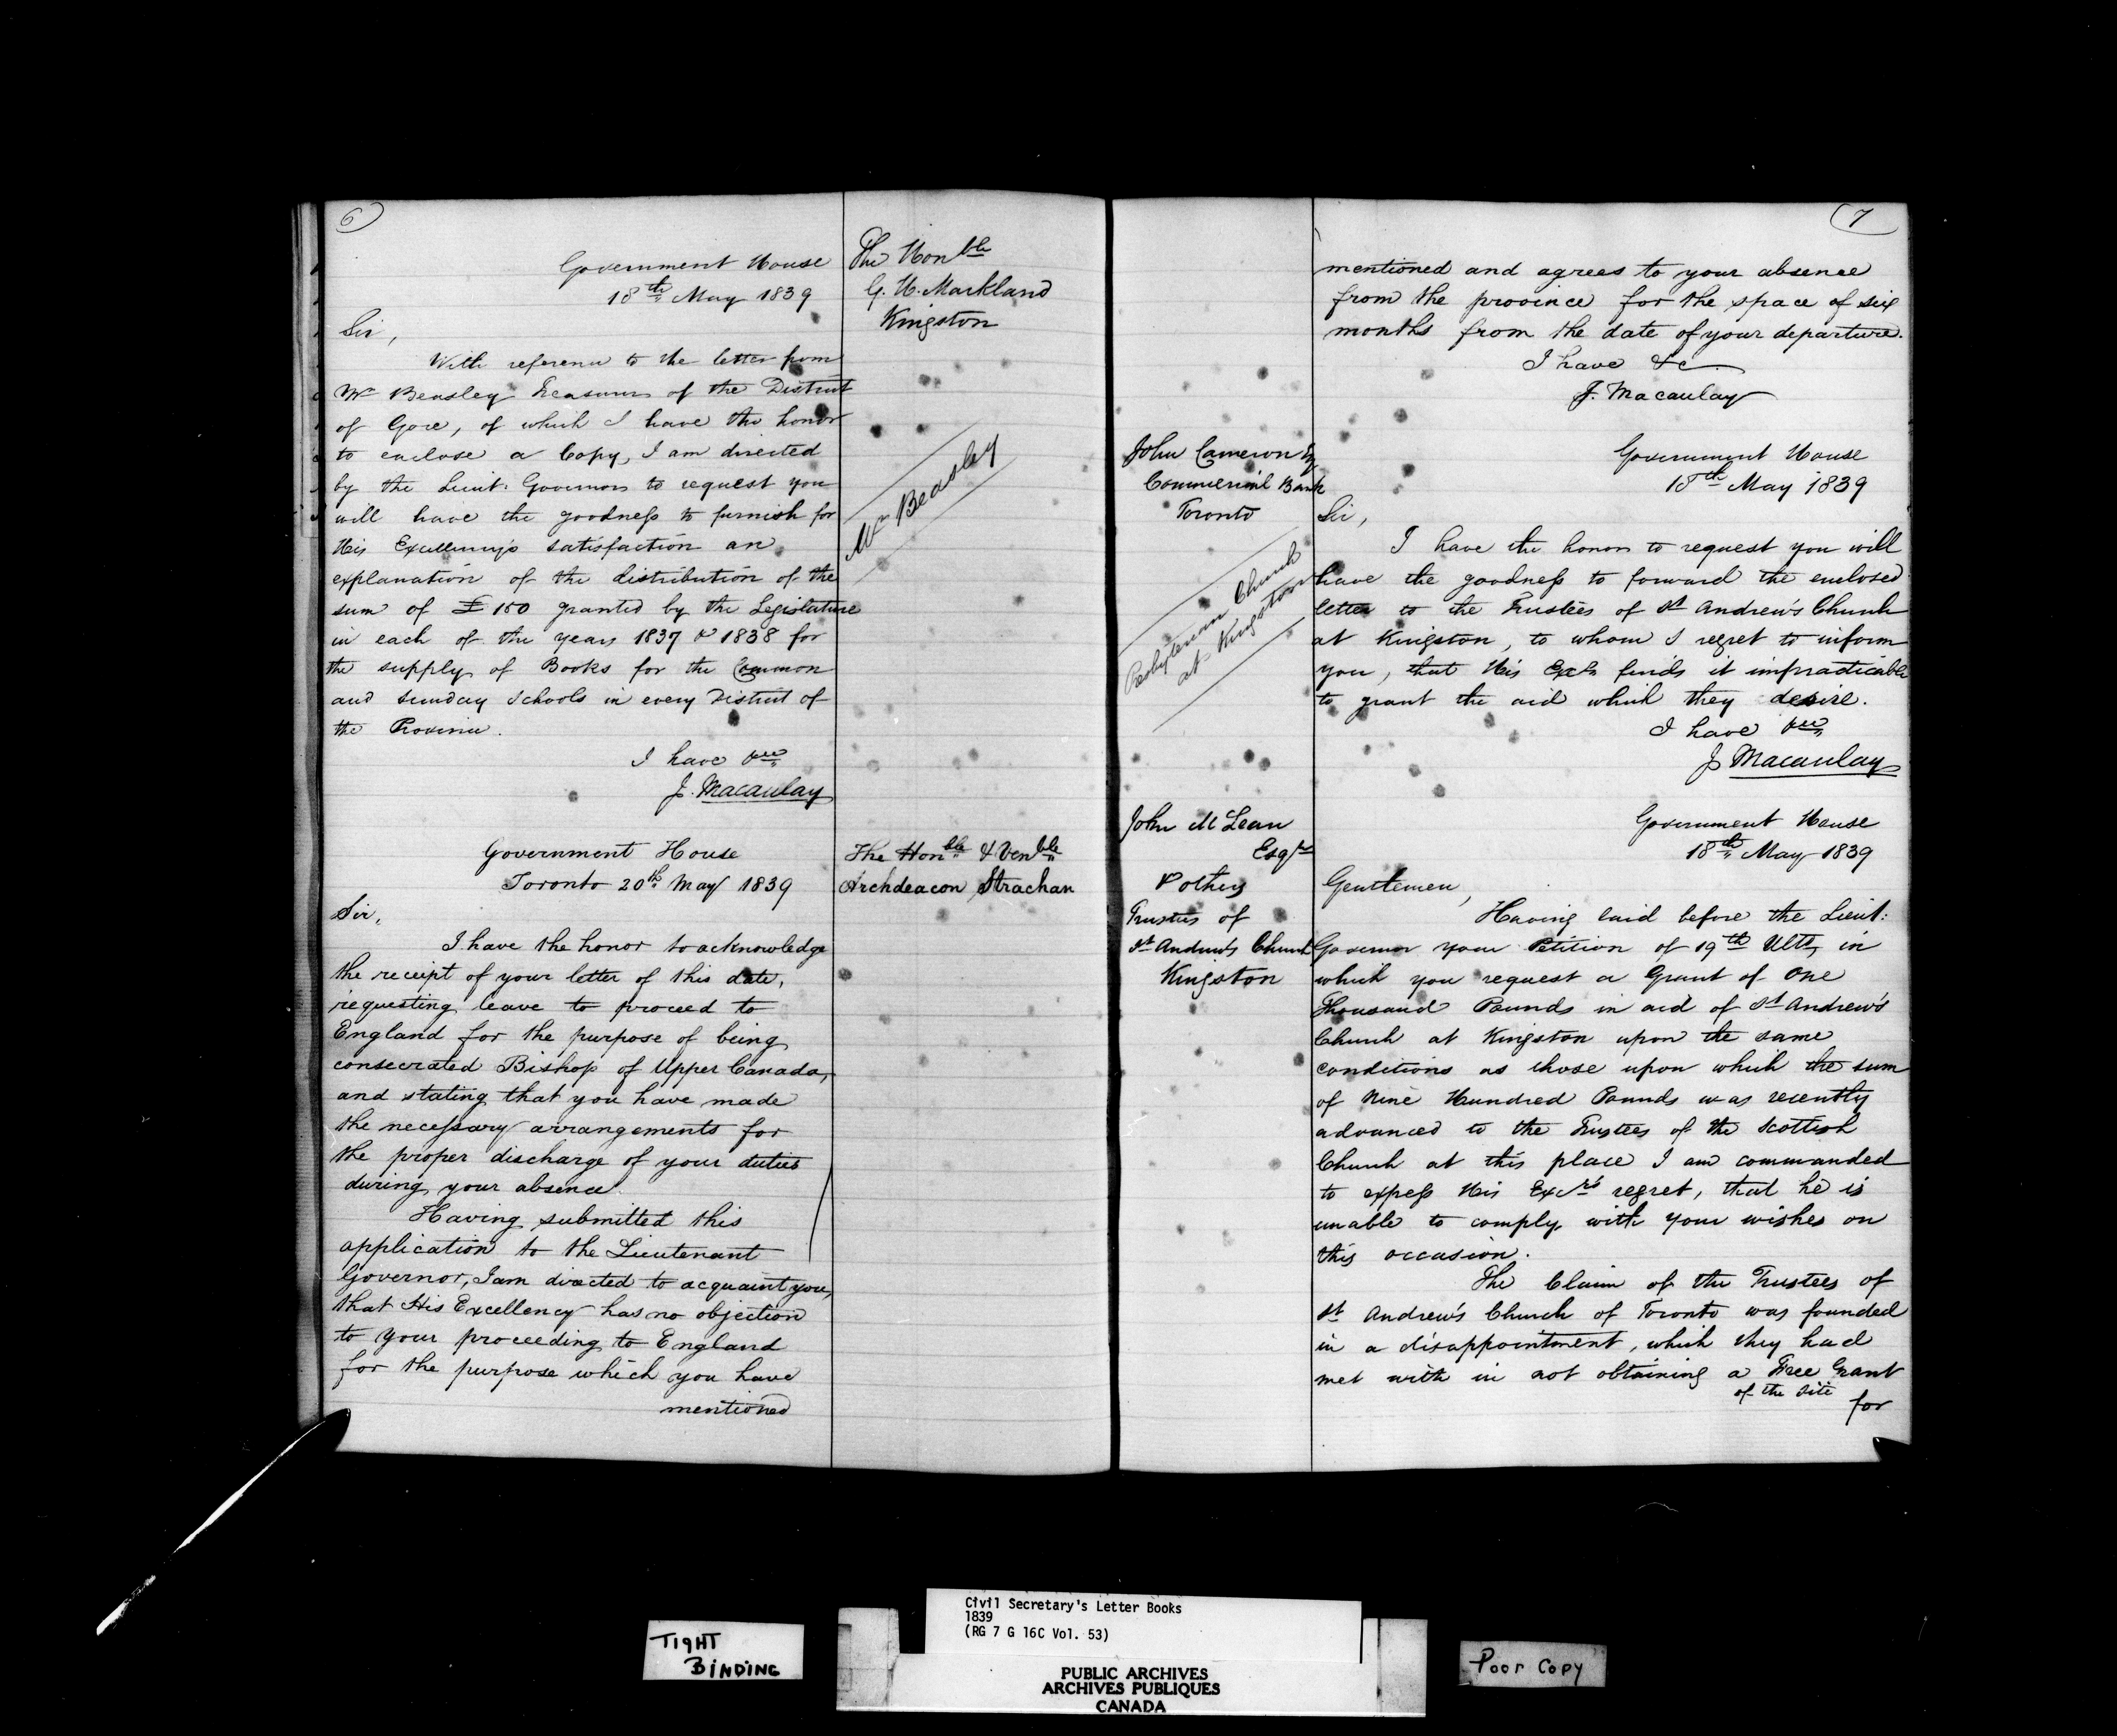 6
Government House
18th May 1839
The Honble
G. H. Markland
Kingston
Sir,
With reference to the letter from
Mr Beasley Treasurer of the District
of Gore, of which I have the honor
to enclose a Copy, I am directed
by the Lieut: Governor to request you
will have the goodness to furnish for
His Excellency's satisfaction an
explanation of the distribution of the
sum of £150 granted by the Legislature
in each of the years 1837 & 1838 for
the supply of Books for the Common
and Sunday Schools in every District of
the Province.
I have &c
J. Macaulay
Mr Beasley
Government House
Toronto 20th May 1839
The Honble & Venble
Archdeacon Strachan
Sir,
I have the honor to acknowledge
the receipt of your letter of this date,
requesting leave to proceed to
England for the purpose of being
consecrated Bishop of Upper Canada,
and stating that you have made
the necessary arrangements for
the proper discharge of your duties
during your absence.
Having submitted this
application to the Lieutenant
Governor, I am directed to acquaint you,
that His Excellency has no objection
to your proceeding to England
for the purpose which you have
mentioned
7
mentioned and agrees to your absence
from the province for the space of six
months from the date of your departure.
I have &c
J. Macaulay
John Cameron Esq
Commercial Bank
Toronto
Presbyterian Church
at Kingston
Government House
18th May 1839
Sir,
I have the honor to request you will
have the goodness to forward the enclosed
letter to the Trustees of St Andrew's Church
at Kingston, to whom I regret to inform
you, that His Excy finds it impracticable
to grant the aid which they desire.
I have &c
J Macaulay
John McLean
Esqre
& others
Trustees of
St Andrew's Church
Kingston
Government House
18th May 1839
Gentlemen,
Having laid before the Lieut:
Governor your Petition of 19th Ulto, in
which you request a Grant of One
Thousand Pounds in aid of St Andrew's
Church at Kingston upon the same
conditions as those upon which the sum
of Nine Hundred Pounds was recently
advanced to the Trustees of the Scottish
Church at this place I am commanded
to express His Excy's regret, that he is
unable to comply with your wishes on
this occasion.
The Claim of the Trustees of
St Andrew's Church of Toronto was founded
in a disappointment, which they had
met with in not obtaining a Free Grant
of the site
for
TIGHT
BINDING
Civil Secretary's Letter Books
1839
(RG 7 G 16C Vol. 53)
PUBLIC ARCHIVES
ARCHIVES PUBLIQUES
CANADA
Poor Copy